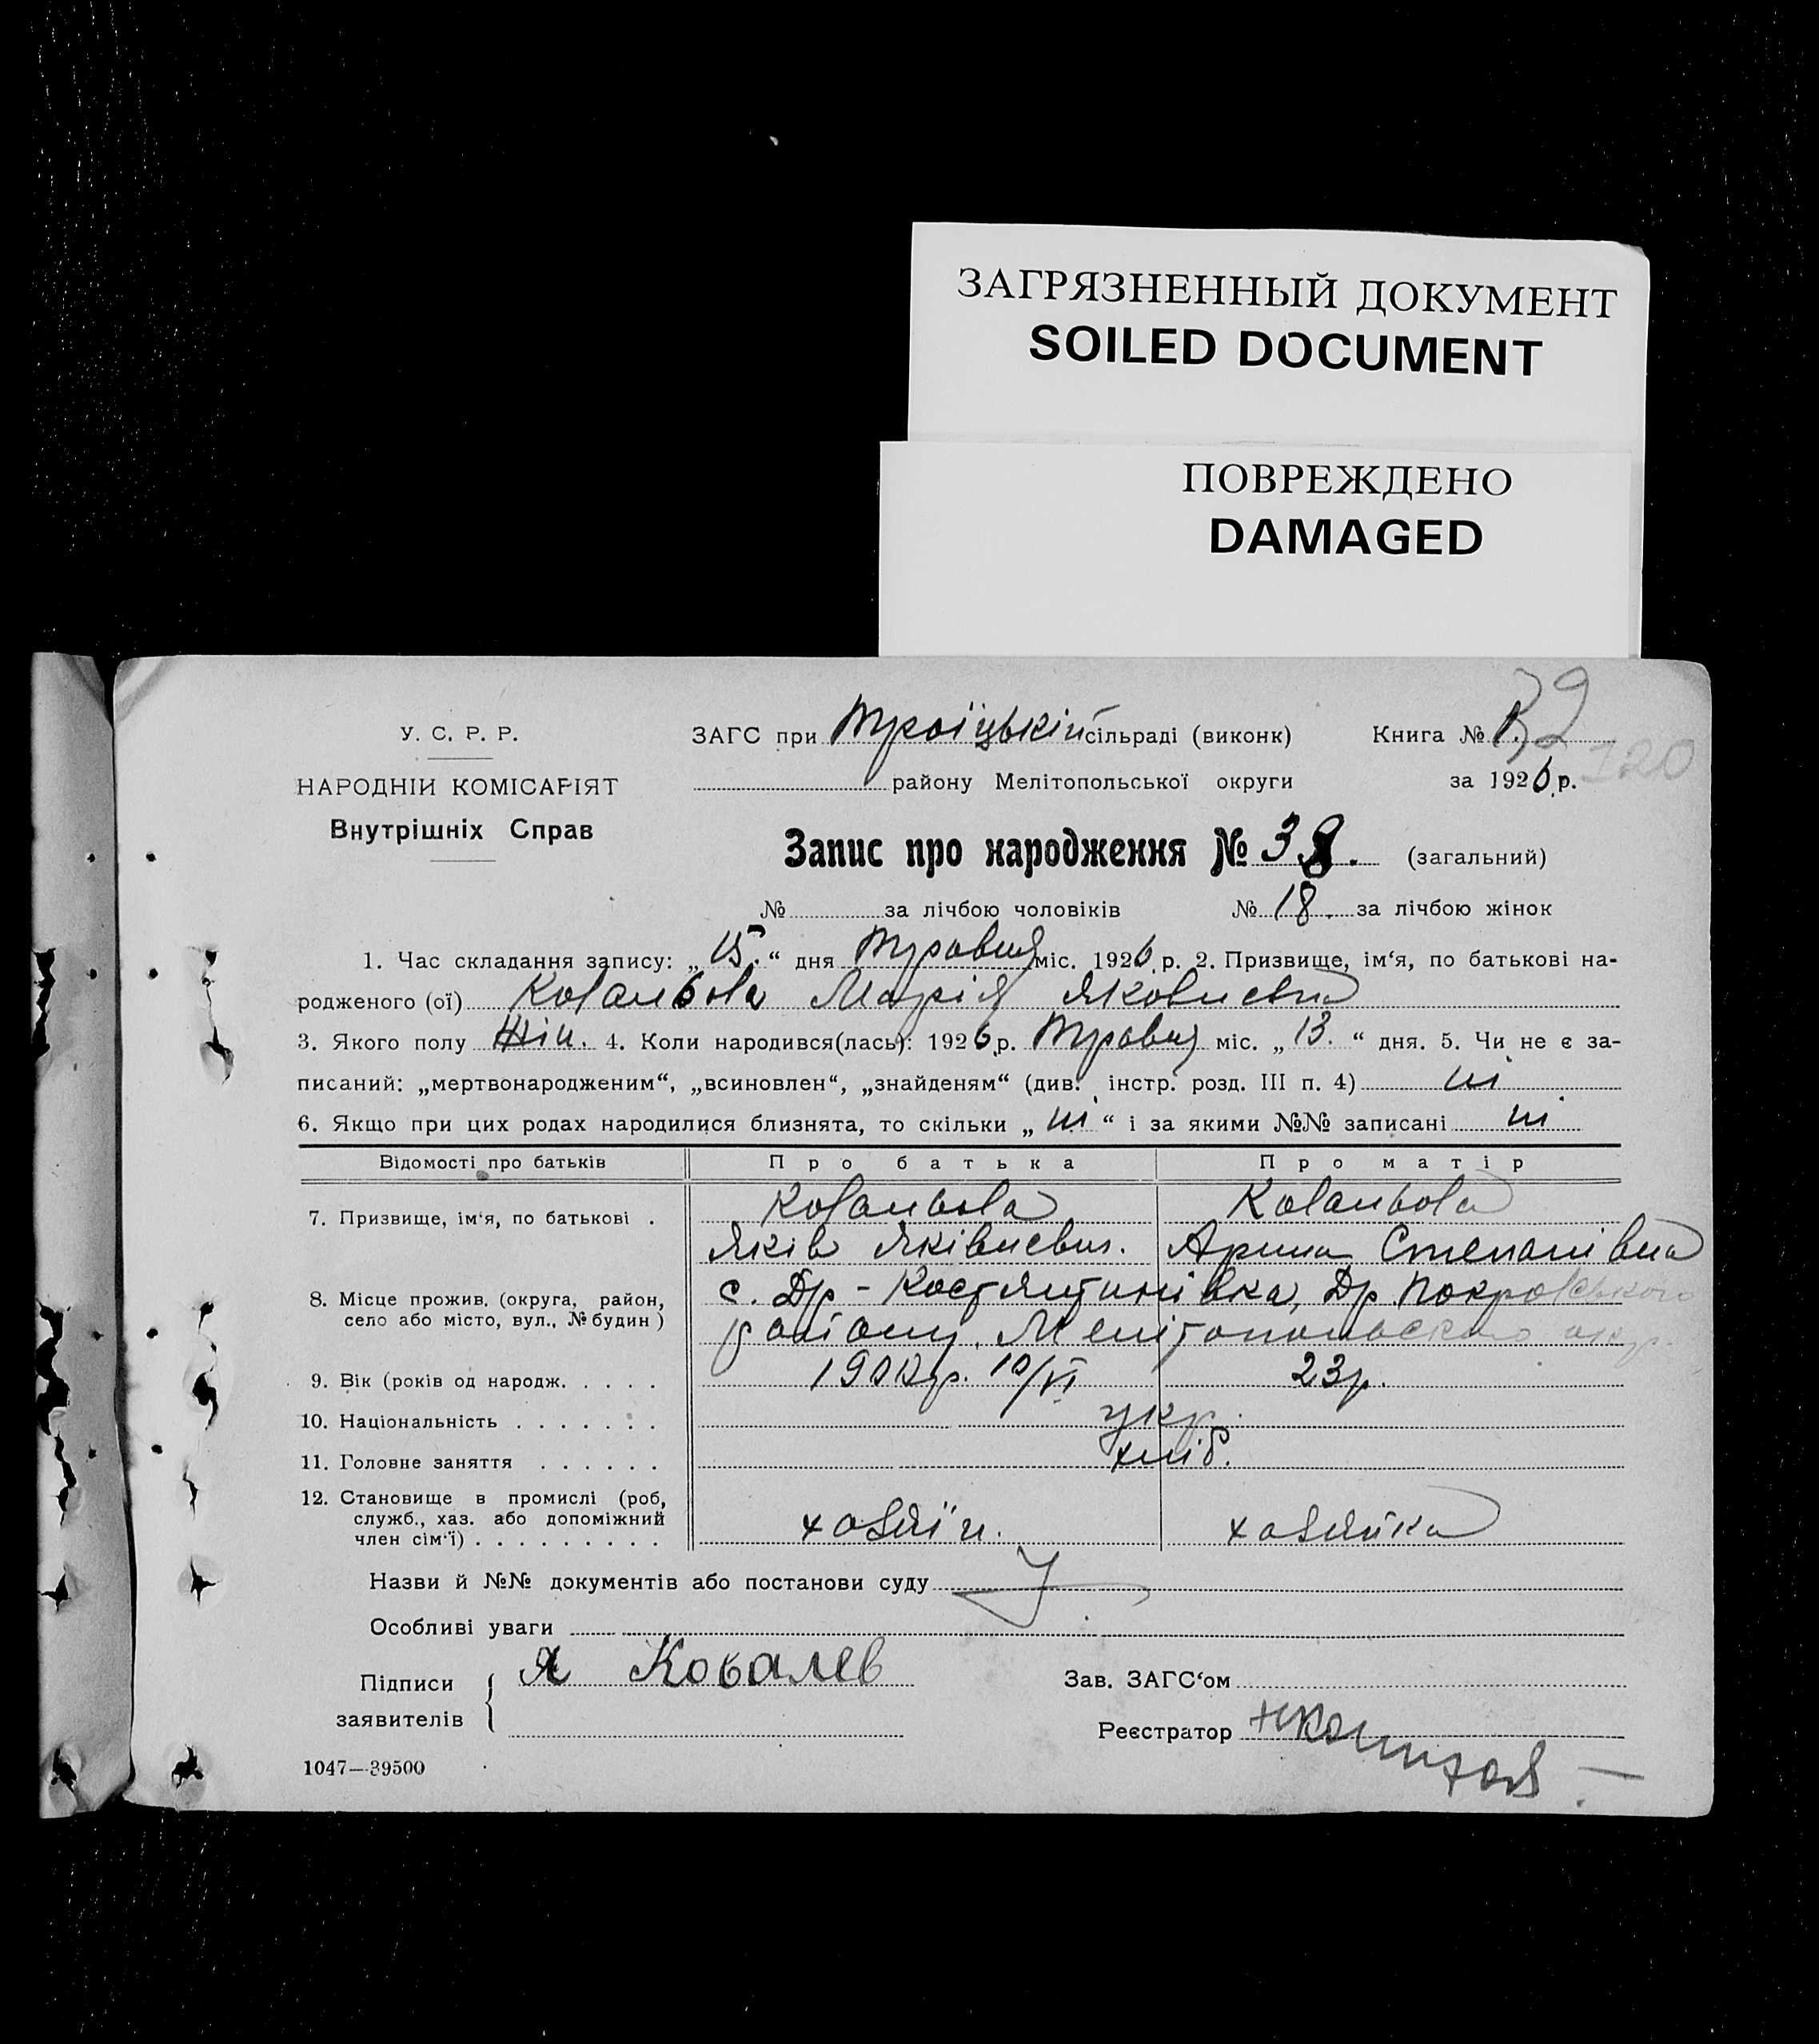 ЗАГРЯЗНЕННЫЙ ДОКУМЕНТ
SOILED DOCUMENT
ПОВРЕЖДЕНО
DAMAGED
У. С. Р. Р.
НАРОДНІЙ КОМІСАРІЯТ
Внутрішніх Справ
ЗАГС при Троїцькій сільраді (виконк)
району Мелітопольської округи
Книга № 1.
за 1926 р.
120
Запис про народження № 38. (загальний)
№ за лічбою чоловіків № 18. за лічбою жінок
1. Час складання запису: „15.“ дня Травня міс. 1926 р. 2. Призвище, ім‘я, по батькові на-
родженого (ої) Ковальова Марія Яковлевна
3. Якого полу жін. 4. Коли народився(лась): 1926 р. Травня міс. „13.“ дня. 5. Чи не є за-
писаний: „мертвонародженим“, „всиновлен“, „знайденям“ (див. інстр. розд. III п. 4) ні
6. Якщо при цих родах народилися близнята, то скільки „ні“ і за якими №№ записані ні
Відомості про батьків Про батька Про матір
7. Призвище, ім‘я, по батькові . Ковальова Ковальова
Яків Арина Степанівна
8. Місце прожив. (округа, район, с. Др-Костянтинівка, Др Покровського
село або місто, вул., № будин) району, Мелітопольского окр.
9. Вік (років од народж. . . . . 10/VI 23р.
10. Національність . . . . . . . укр.
11. Головне заняття . . . . . . хліб.
12. Становище в промислі (роб,
служб., хаз. або допоміжний
член сім‘ї) . . . . . . . . . хазяїн. хазяйка
Назви й №№ документів або постанови суду
Особливі уваги
Підписи
заявителів
Я Ковалев
Зав. ЗАГС‘ом
Реєстратор
1047—39500